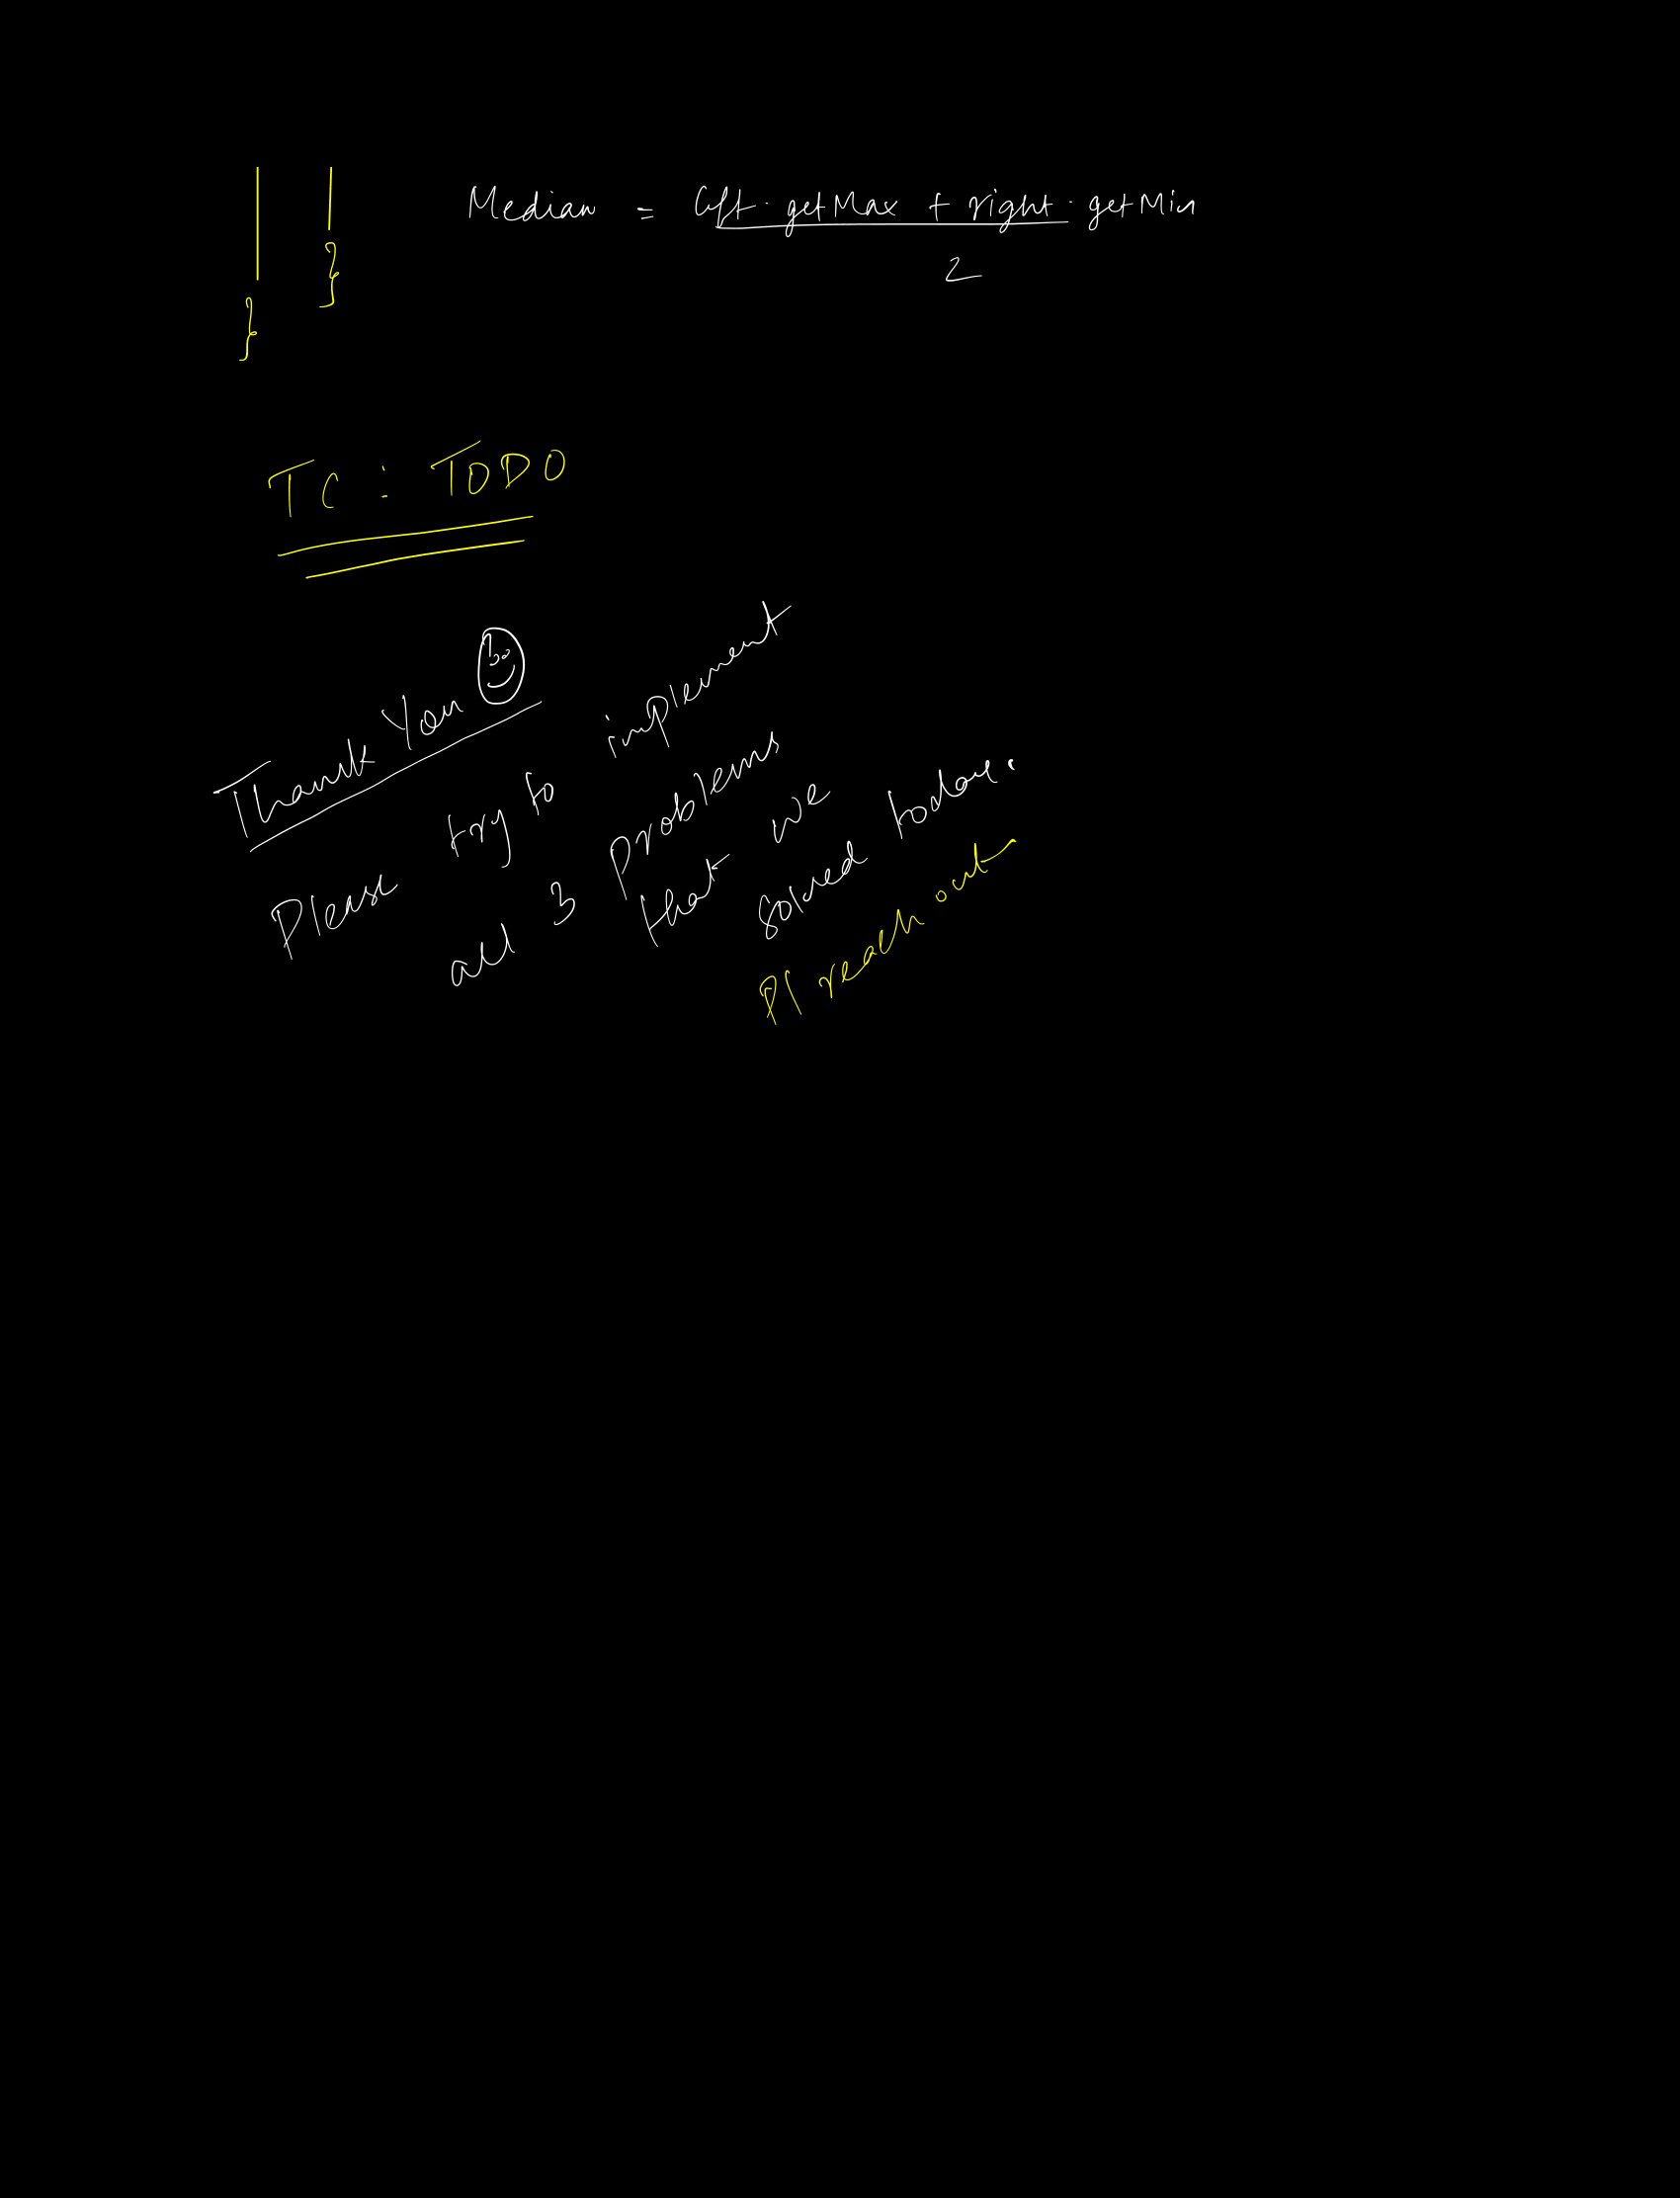 Median = left.getMax + right.getMin
2
}
}
TC : TODO
Thank You
Please try to implement
all 3 problems
that we
solved today.
Pl reach out